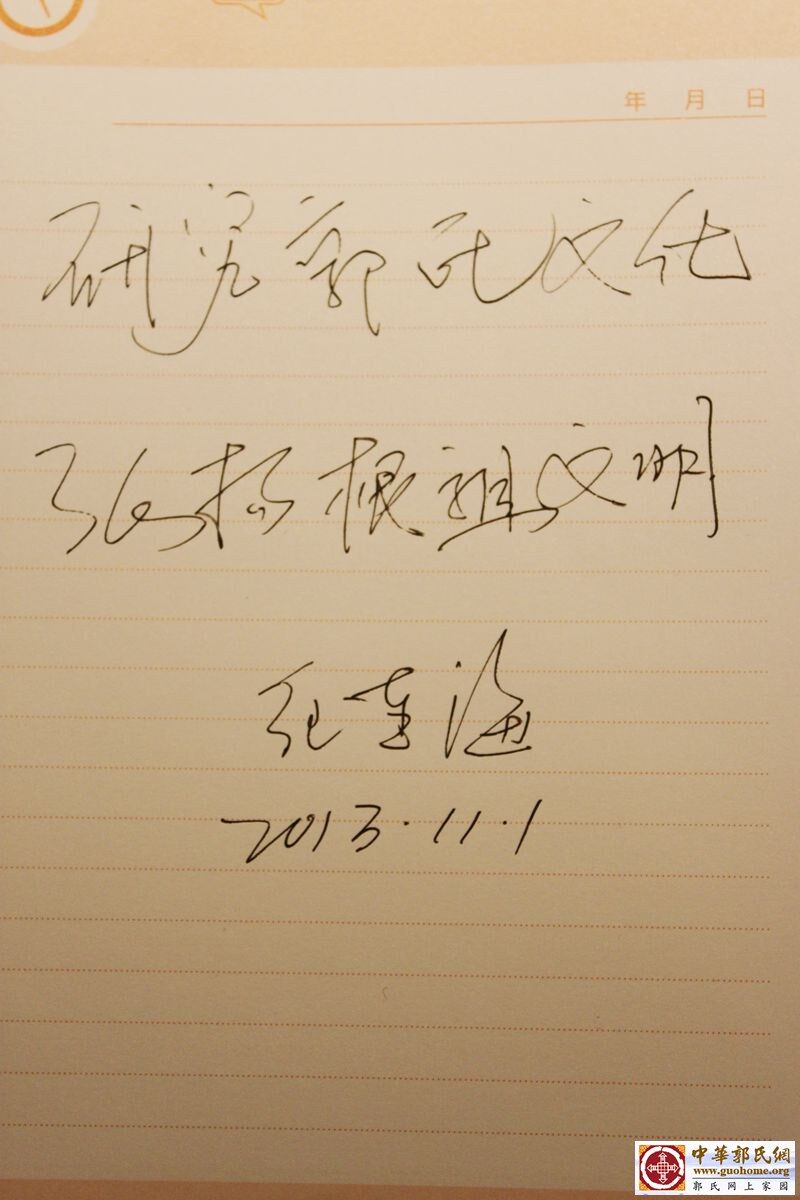 年 月 日
研究郭氏文化
弘扬根祖文明
纪连海
2013.11.1
中華郭氏網
www.guohome.org
郭氏网上家园